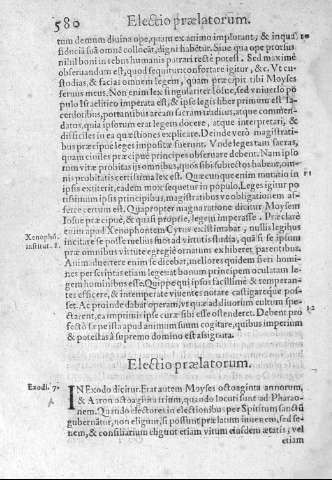 580 Electio prælatorum.
tum demum diuina ope, quam ex animo implorant, & in qua
fiducia suā omnē collocāt, digni habētur. Siue qua ope prorsus
nihil boni in rebus humanis patrari rectè potest. Sed maximè
obseruandum est, quod sequitur: confortare igitur, &c. Vt cu-
stodias, & facias omnem legem, quam præcepit tibi Moyses
seruus meus. Non enim lex singulariter Iosue, sed vniuerso po
pulo Israelitico imperata est, & ipse legis liber primum est sa-
cerdotibus, portantibus arcam sacram traditus, atque commen-
datus, quia ipsorum erat legem docere, atque interpretari, &
difficiles in ea quæstiones explicare. Deinde verò magistrati-
bus præcipuè leges impositæ fuerunt. Vnde leges tam sacras,
quam ciuiles præcipuè principes obseruare debent. Nam ipso
rum vitæ probitas ijs omnibus, quos sibi subiectos habent, om-
nis probitatis certissima lex est. Quæcunque enim mutatio in
ipsis extiterit, eadem mox sequetur in populo. Leges igitur po
tissimum ipsis principibus, magistratibus vè obligationem af-
ferre certum est. Quapropter magna ratione dicitur Moysem
Iosue præcipuè, & quasi propriè, legem imperasse. Præclarè
enim apud Xenophontem Cyrus existimabat, nullis legibus
Xenophō.
institut. 1.
incitare se posse melius suos ad virtutis studia, quā si se ipsum
præ omnibus virtute egregiè ornatum exhiberet parentibus.
Animaduertere enim se dicebat, meliores quidem fieri homi-
nes per scriptas etiam leges: at bonum principem oculatam le-
gem hominibus esse. Quippe qui ipsos facillimè & temperan-
ter efficere, & intemperatè viuentes notare castigareque pos-
set. Ac proinde dabat operam, vt quæ ad diuorum cultum spe-
ctarent, ea in primis ipse curæ sibi esse ostenderet. Debent pro
fectò sæpe ista apud animum suum cogitare, quibus imperium
& potestas à supremo domino est assignata.
Electio prælatorum.
Exodi. 7.
A
IN Exodo dicitur. Erat autem Moyses octoaginta annorum,
& Aaron octoaginta trium, quando locuti sunt ad Pharao-
nem. Quando electores in electionibus per Spiritum sanctū
gubernātur, non eligunt, si possunt, prælatum iuuenem, sed se-
nem, & consiliarium eligunt etiam vitum eiusdem ætatis; vel
etiam